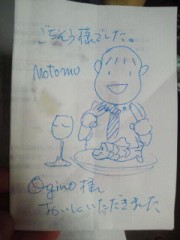 ごちそう様でした。
Motomu
Ogino 様
おいしくいただきました